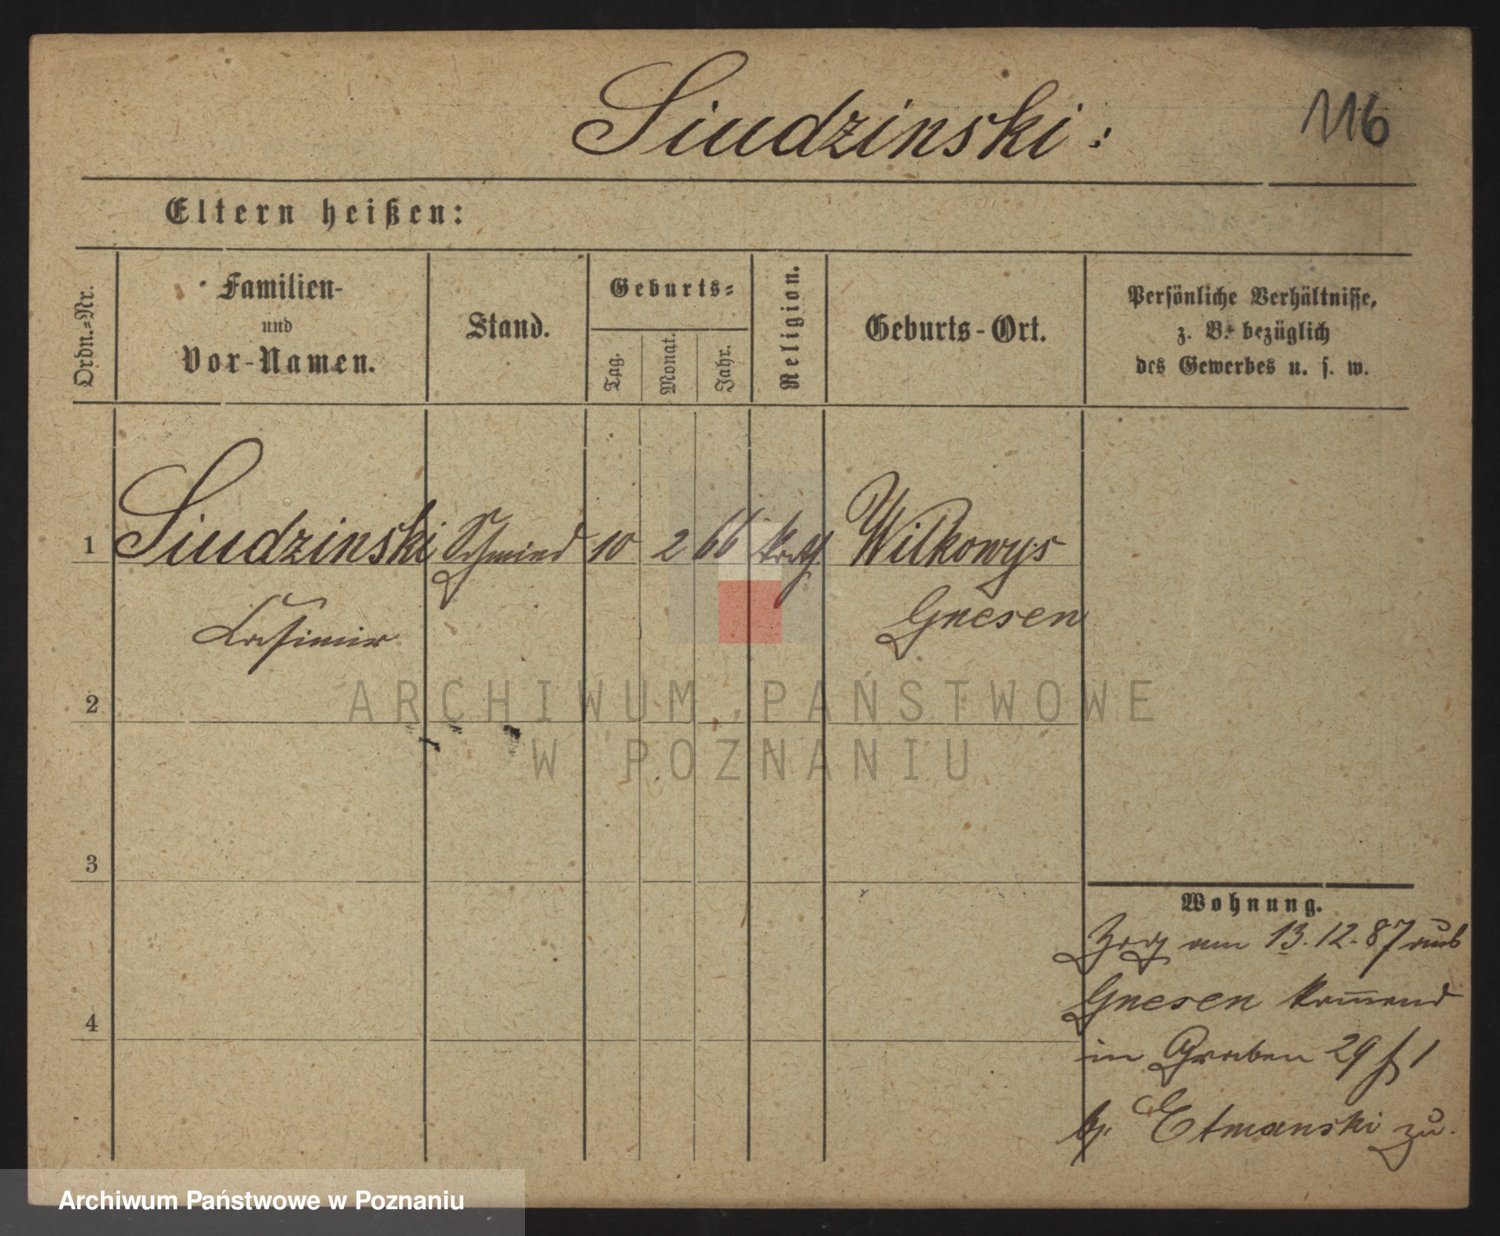 Siudzinski:
116
Eltern heißen:
Ordn.=Nr.
Familien-
und
Vor-Namen.
Stand.
Geburts=
Tag.
Monat.
Jahr.
Religion.
Geburts-Ort.
Persönliche Verhältnisse,
z. B. bezüglich
des Gewerbes u. s. w.
1 Siudzinski Schmied 10 2 66 kath. Wilkowys
Casimir
Gnesen
2
3
4
Wohnung.
am 13.12.87 aus
Gnesen kommend
in Graben 29 1
Etmanski zu.
ARCHIWUM PAŃSTWOWE
W POZNANIU
Archiwum Państwowe w Poznaniu